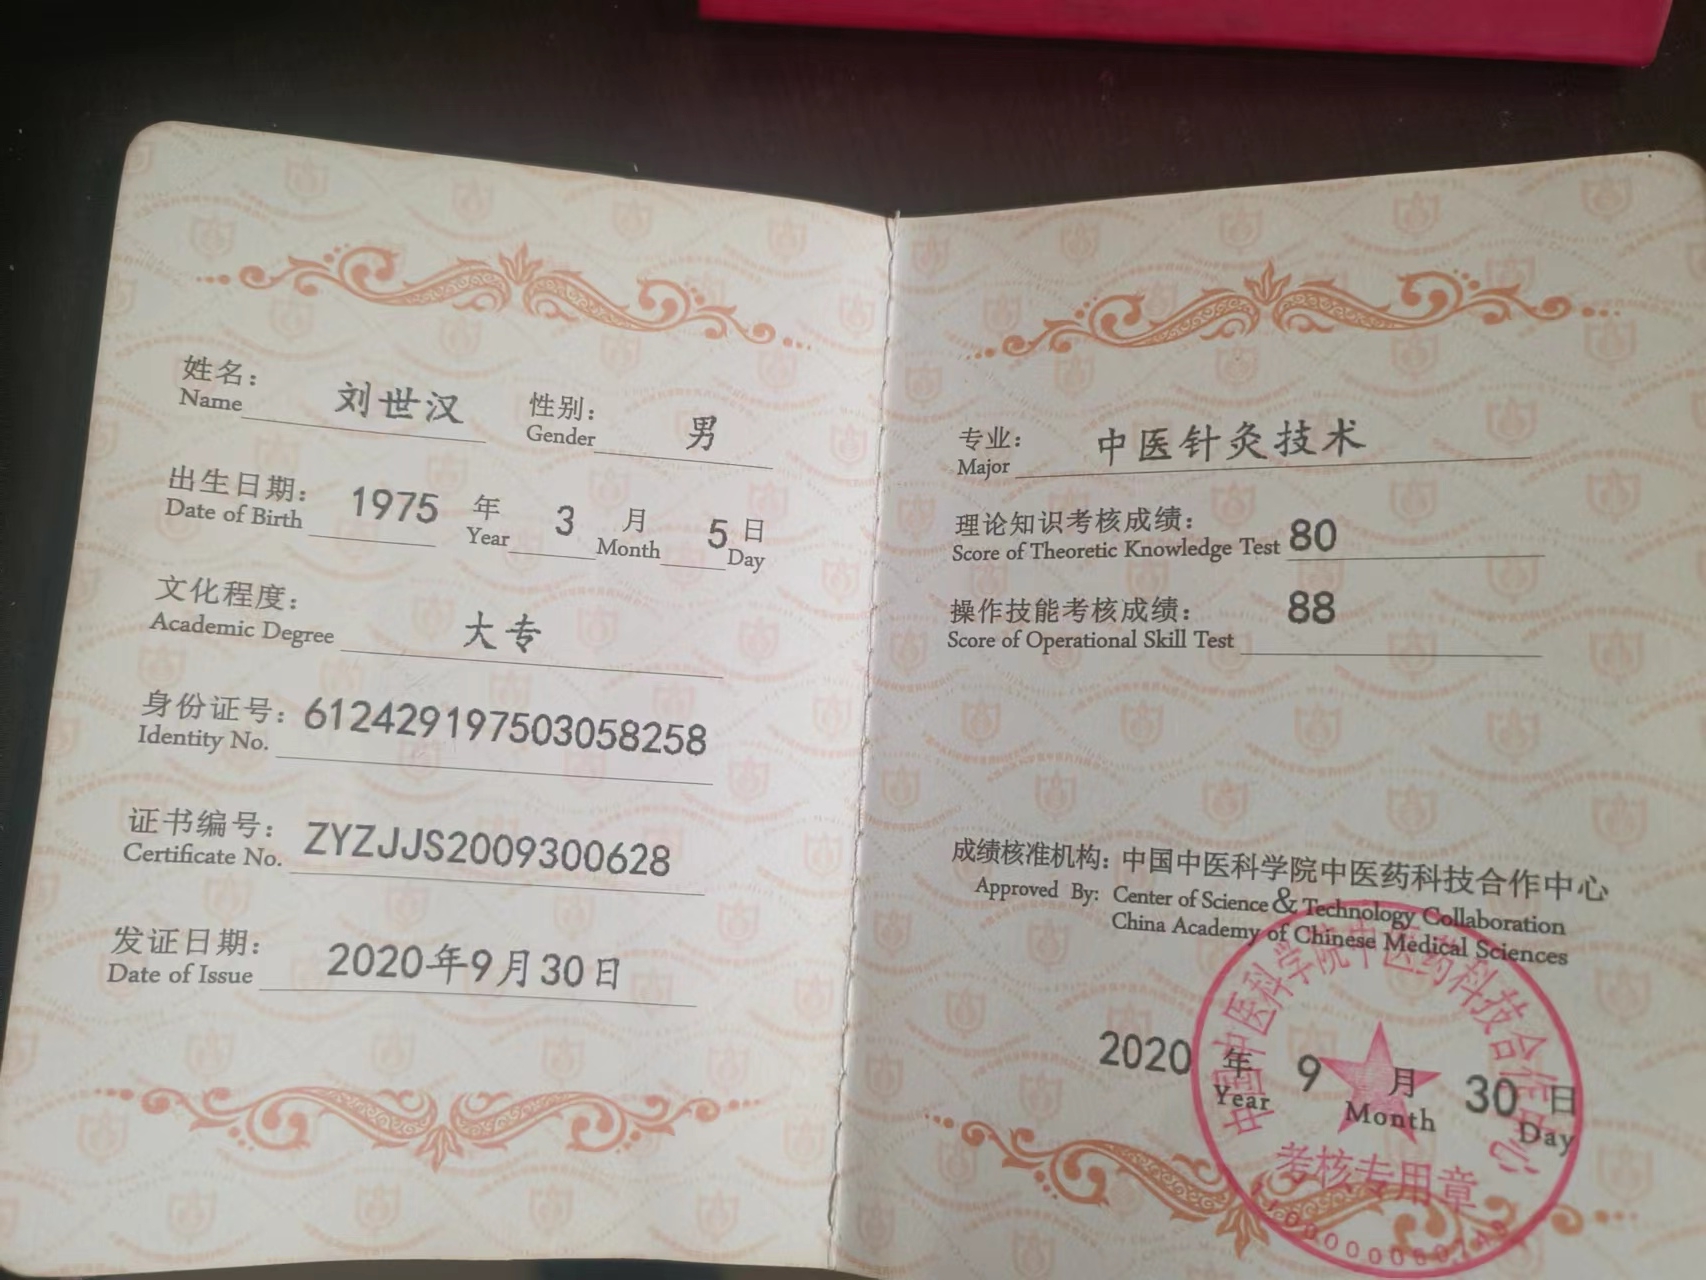 姓名： 刘世汉 性别： 男
Name Gender
出生日期： 1975 年 3 月 5 日
Date of Birth Year Month Day
文化程度： 大专
Academic Degree
身份证号： 612429197503058258
Identity No.
证书编号： ZYZJJS2009300628
Certificate No.
发证日期： 2020年9月30日
Date of Issue
专业： 中医针灸技术
Major
理论知识考核成绩： 80
Score of Theoretic Knowledge Test
操作技能考核成绩： 88
Score of Operational Skill Test
成绩核准机构：中国中医科学院中医药科技合作中心
Approved By: Center of Science & Technology Collaboration
China Academy of Chinese Medical Sciences
中国中医科学院中医药科技合作中心
2020 年 9 月 30 日
Year Month Day
考核专用章